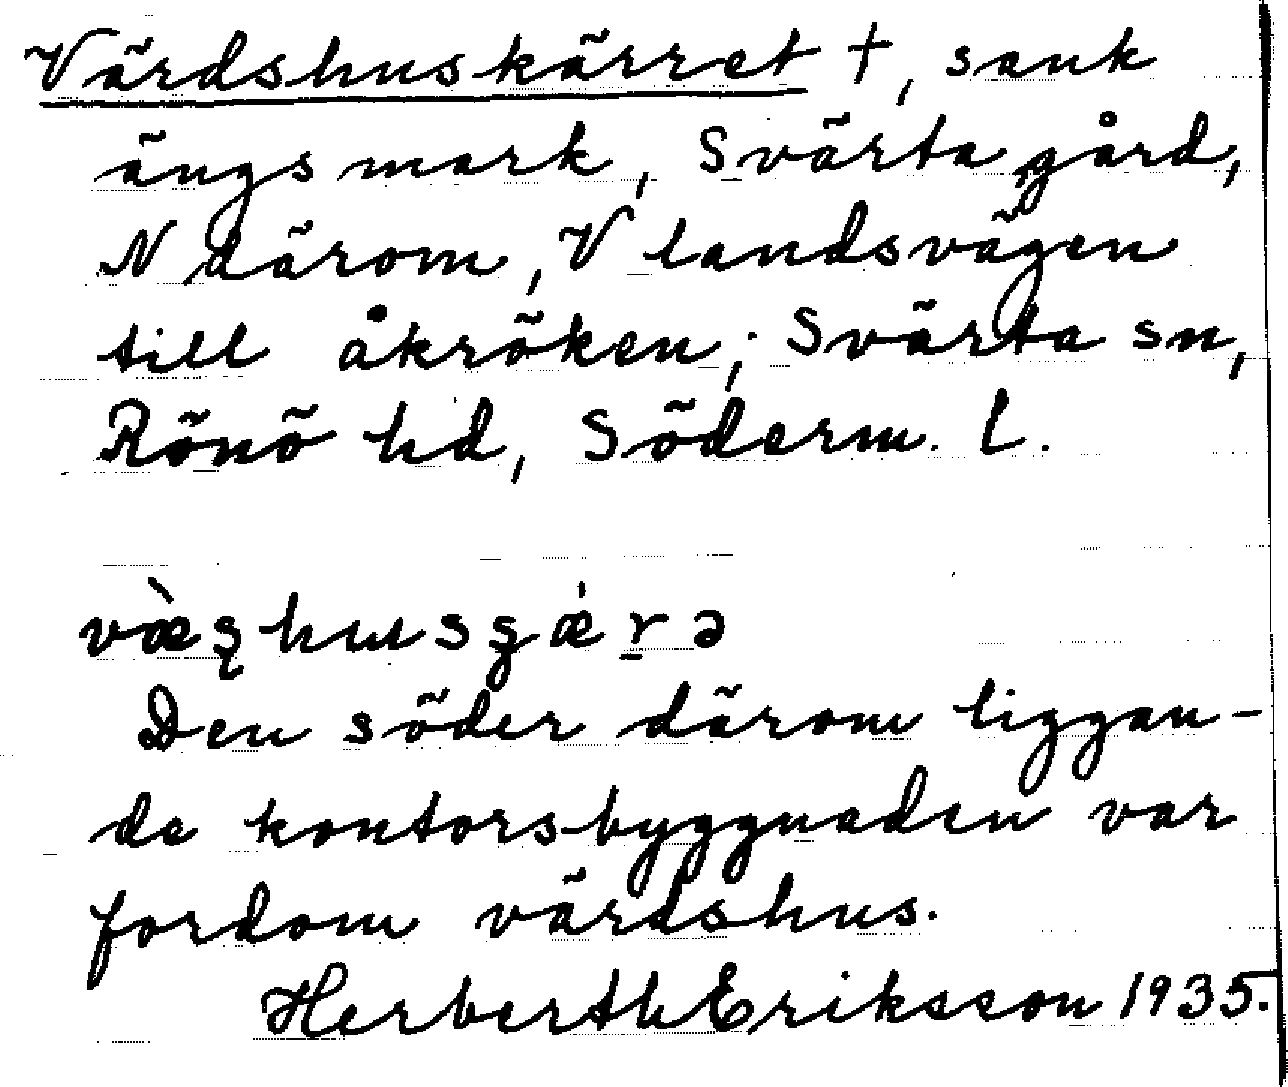 Värdshuskärret †, sank
ängsmark, Svärta gård,
N därom, V landsvägen
till åkröken; Svärta sn,
Rönö hd, Söderm. l.
Den söder därom liggan-
de kontorsbyggnaden var
fordom värdshus.
Herberth Eriksson 1935.